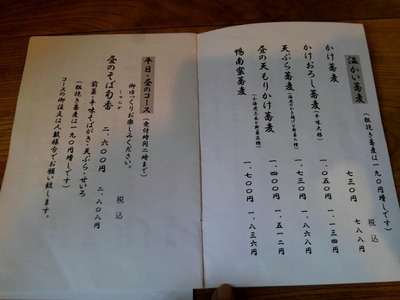 温かい蕎麦
(粗挽き蕎麦は一九〇円増しです)
税込
かけ蕎麦 七三〇円 七八八円
かけおろし蕎麦(辛味大根) 一.〇五〇円 一.一三四円
天ぷら蕎麦 一.七三〇円 一.八六八円
昼の天もりかけ蕎麦 一.四〇〇円 一.五一二円
鴨南蛮蕎麦 一.七〇〇円 一.八三六円
平日・昼のコース(受付時間二時まで)
ゆっくりお楽しみください。
税込
昼のそば旬香 二.六〇〇円 二.八〇八円
前菜・辛味そばがき・天ぷら・せいろ
(粗挽き蕎麦は一九〇円増しです)
コースの御注文は人数様分でお願い致します。